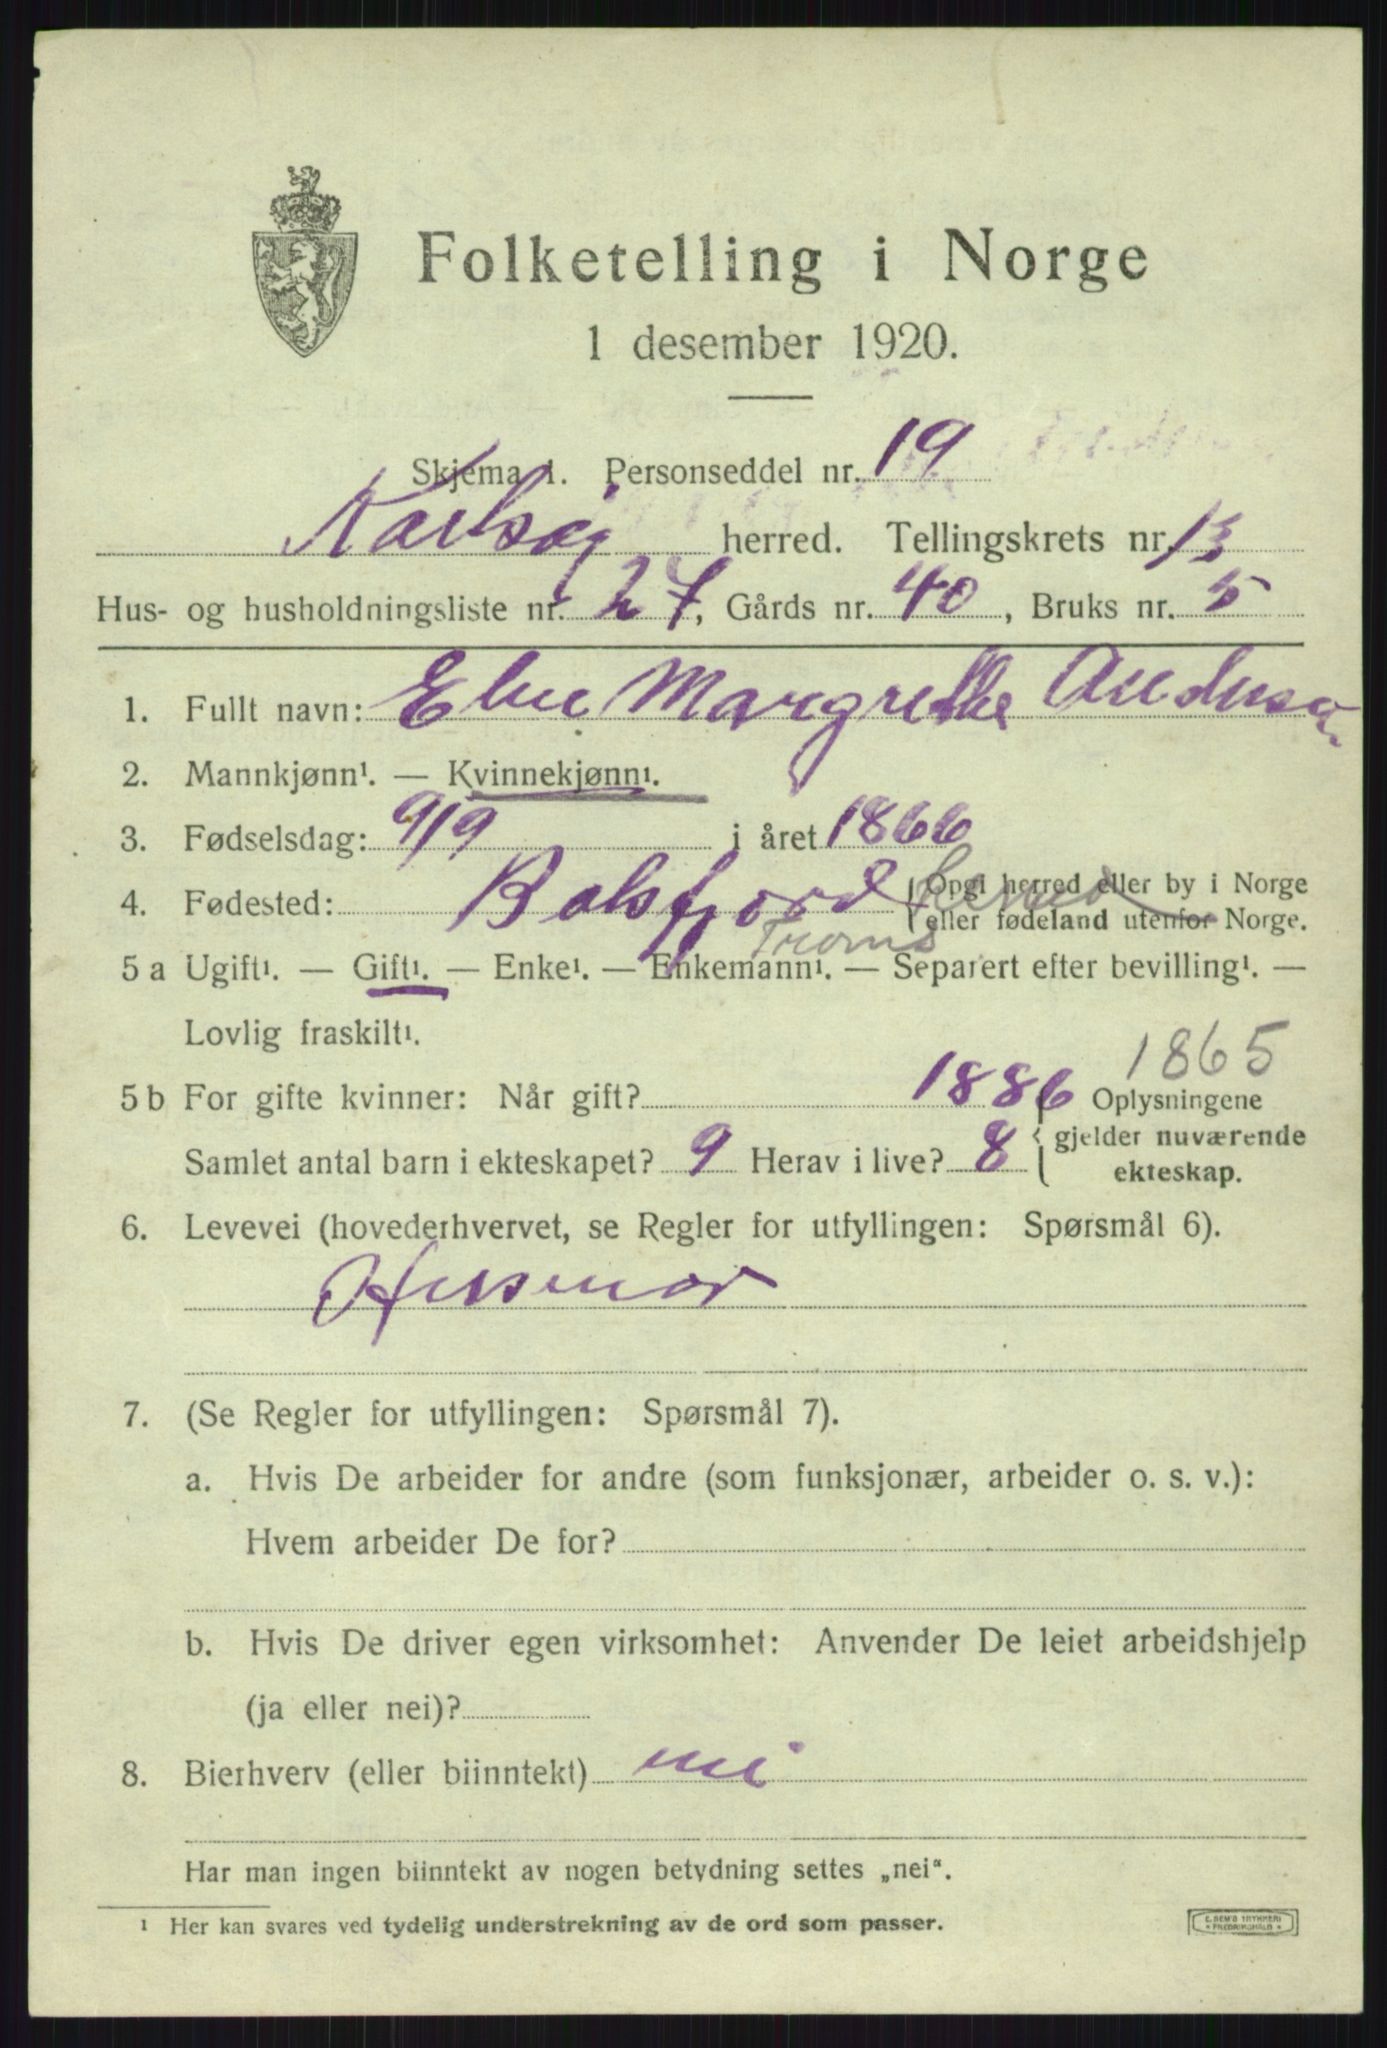 Folketelling i Norge
1 desember 1920.
Skjema 1. Personseddel nr. 19
Karlsøy herred. Tellingskrets nr. 13
Hus- og husholdningsliste nr. 27, Gårds nr. 40, Bruks nr. 5
1. Fullt navn: Margrethe Andersen
2. Mannkjønn¹. — Kvinnekjønn¹.
3. Fødselsdag: 9/9 i året 1866
4. Fødested: Balsfjord herred { Opgi herred eller by i Norge
eller fødeland utenfor Norge.
Troms
5 a Ugift¹. — Gift¹. — Enke¹. — Enkemann¹. — Separert efter bevilling¹. —
Lovlig fraskilt¹.
1865
5 b For gifte kvinner: Når gift? 1886 Oplysningene
Samlet antal barn i ekteskapet? 9 Herav i live? 8 { gjelder nuværende
ekteskap.
6. Levevei (hovederhvervet, se Regler for utfyllingen: Spørsmål 6).
Husmor
7. (Se Regler for utfyllingen: Spørsmål 7).
a. Hvis De arbeider for andre (som funksjonær, arbeider o. s. v.):
Hvem arbeider De for?
b. Hvis De driver egen virksomhet: Anvender De leiet arbeidshjelp
(ja eller nei)?
8. Bierhverv (eller biinntekt) nei
Har man ingen biinntekt av nogen betydning settes „nei“.
¹ Her kan svares ved tydelig understrekning av de ord som passer.